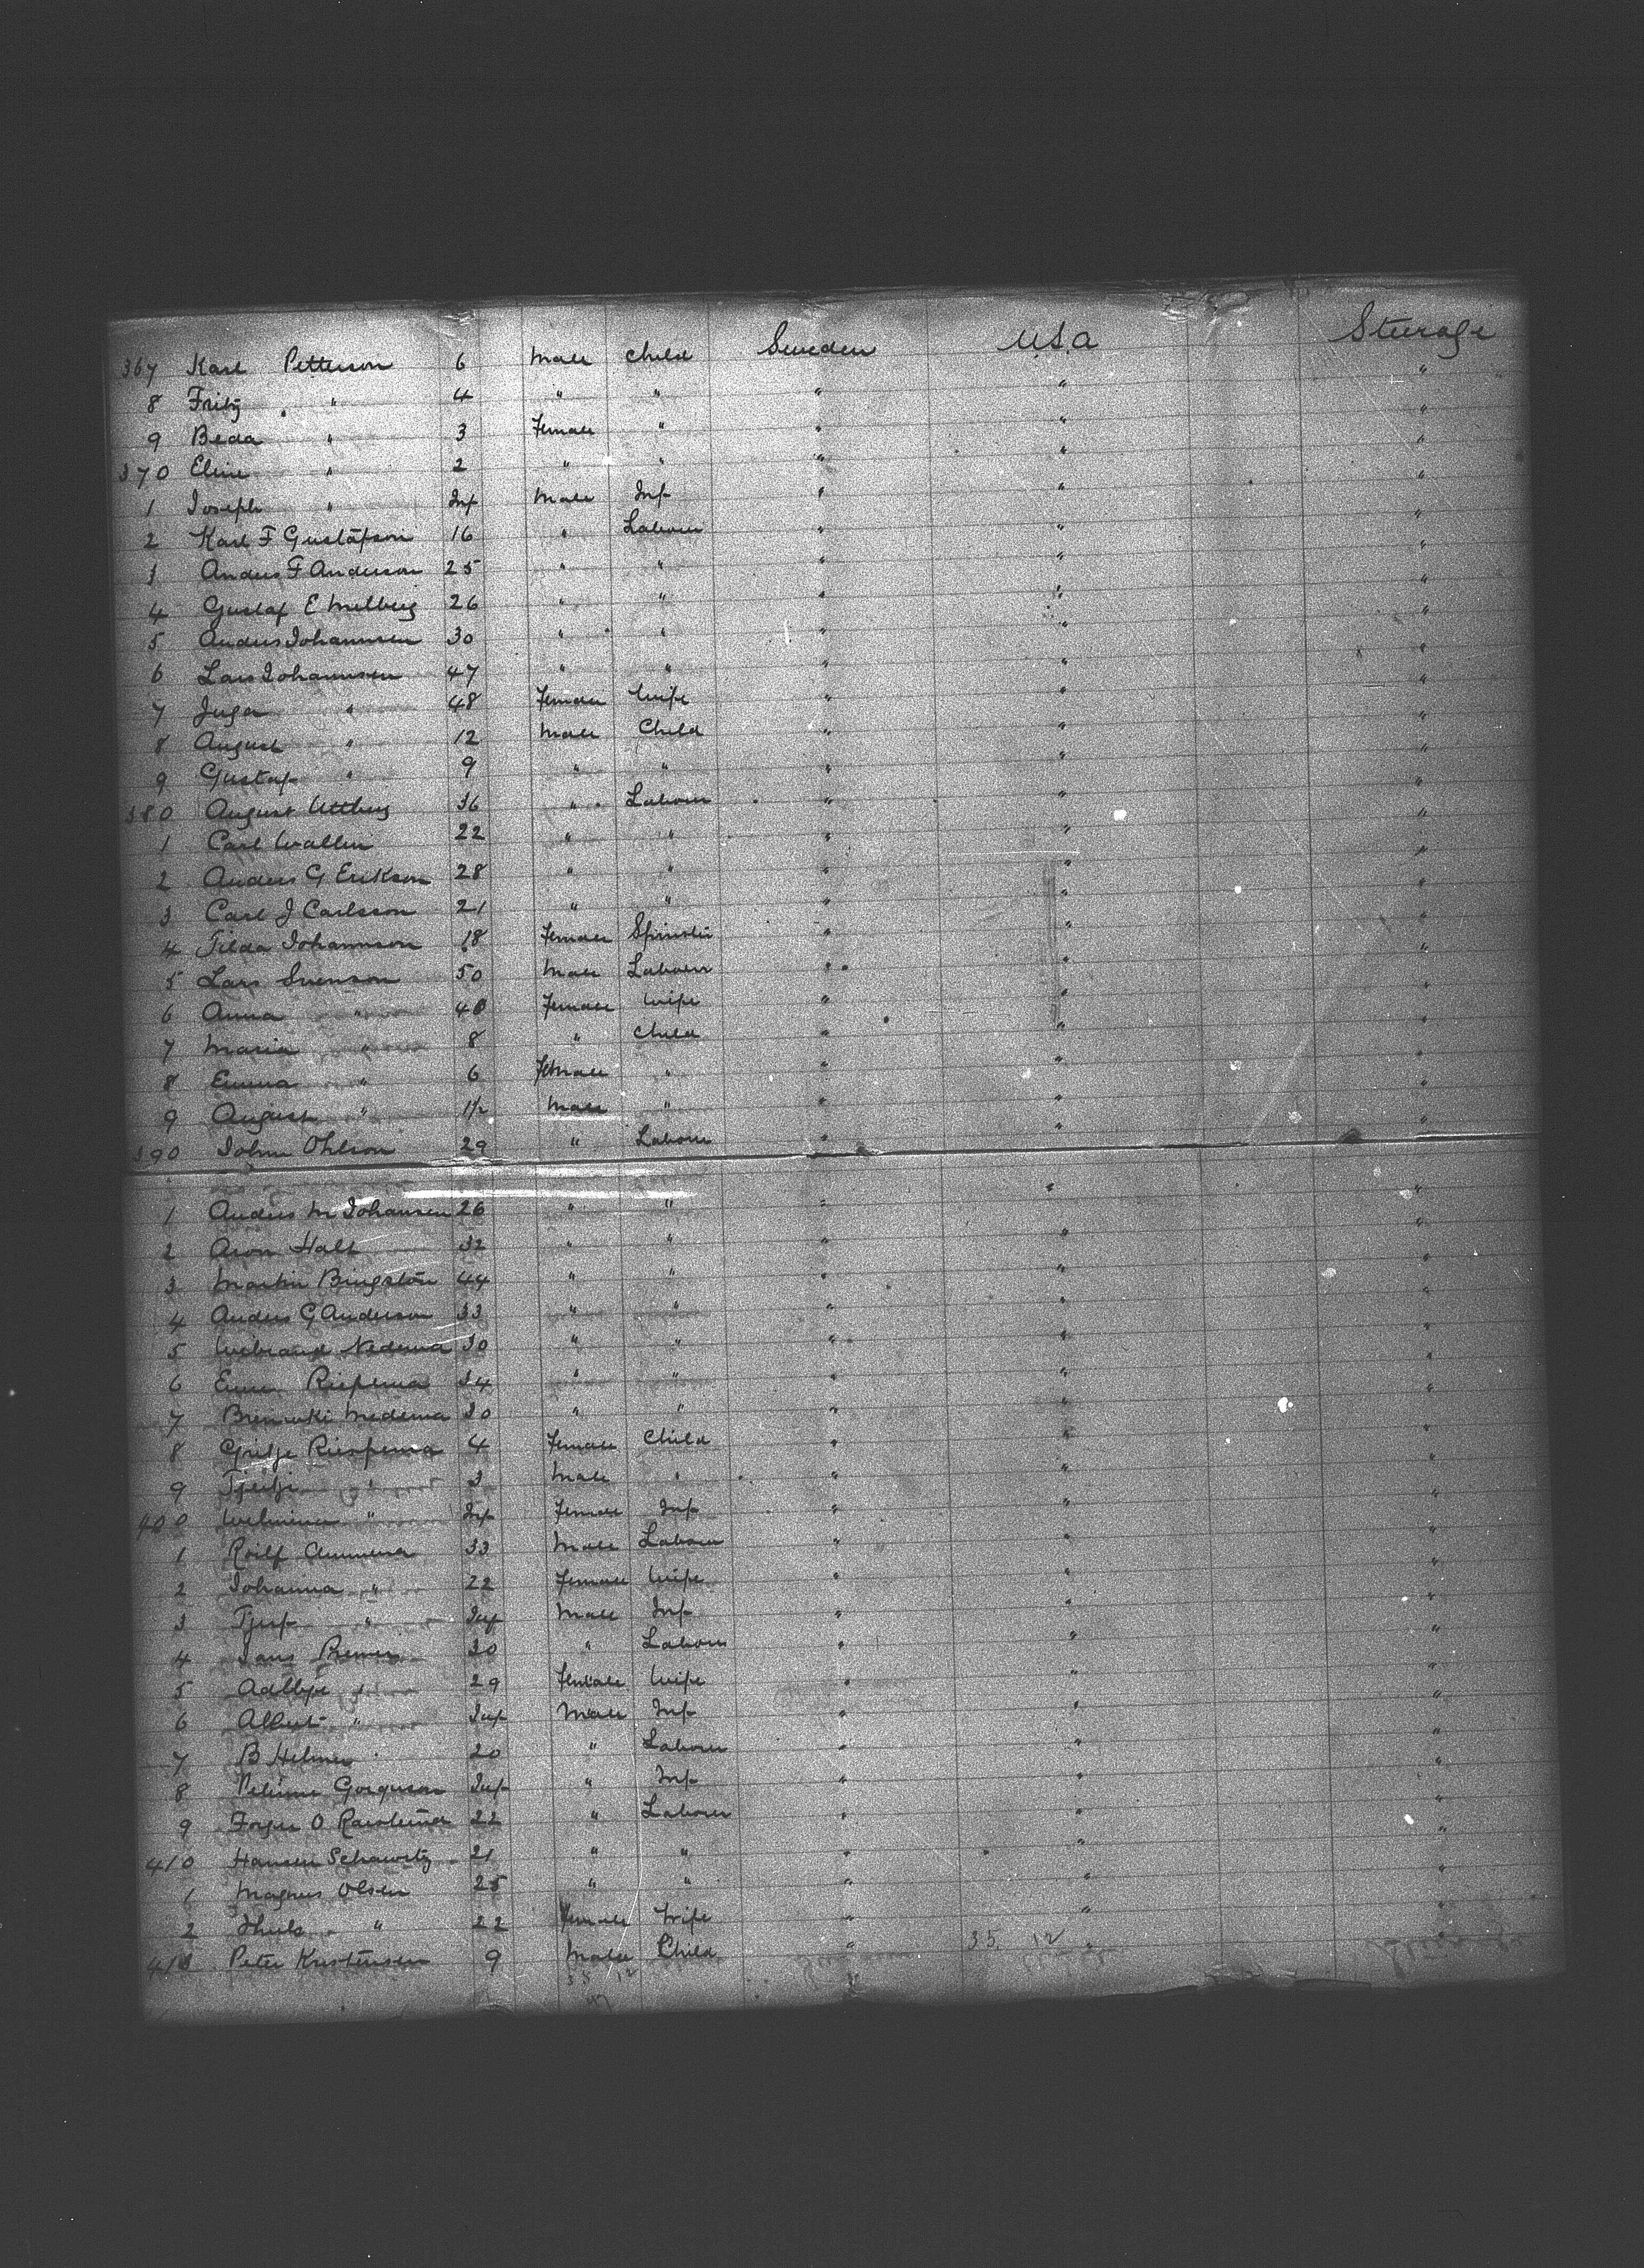 367 Karl Petterson 6 Male Child Sweden U.S.a Sturage
8 Fritz " 4 " " " " "
9 Beda " 3 Female " " " "
370 Eline " 2 " " " " "
1 Joseph " Inf Male Inf " " "
2 Karl F Gustafson 16 " Labourer " " "
3 Anders F Anderson 25 " " " " "
4 Gustaf E Melberg 26 " " " " "
5 Anders Johannsen 30 " " " " "
6 Lars Johannsen 47 " " " " "
7 Inga " 48 Female Wife " " "
8 August " 12 Male Child " " "
9 Gustaf " 9 " " " " "
380 August 36 " Labourer " " "
1 Carl Wallin 22 " " " " "
2 Anders G Erikson 28 " " " " "
3 Carl J Carlsson 21 " " " " "
4 Tilda Johannson 18 Female Spinster " " "
5 Lars Svenson 50 Male Labourer " " "
6 Anna " 40 Female Wife " " "
7 Maria " 8 " Child " " "
8 Emma " 6 Female " " " "
9 August " 1½ Male " " " "
390 John Ohlson 29 " Labourer " " "
1 Anders M Johansen 26 " " " " "
2 Aron Hall 32 " " " " "
3 Martin Bingston 44 " " " " "
4 Anders G Anderson 33 " " " " "
5 Nedema 30 " " " " "
6 34 " " " " "
7 Medema 30 " " " " "
8 Gritje Riespema 4 Female Child " " "
9 " 3 Male " " " "
400 " Inf Female Inf " " "
1 Roilf 33 Male Labourer " " "
2 Johanna " 22 Female Wife " " "
3 " Inf Male Inf " " "
4 30 " Labourer " " "
5 " 29 Female Wife " " "
6 Albert " Inf Male Inf " " "
7 B Helmer 20 " Labourer " " "
8 Inf " Inf " " "
9 22 " Labourer " " "
410 Hansen 21 " " " " "
1 Magnus Olsen 25 " " " " "
2 " 22 Female Wife " " "
413 Peter Kristensen 9 Male Child " " "
35 12
35 12
47